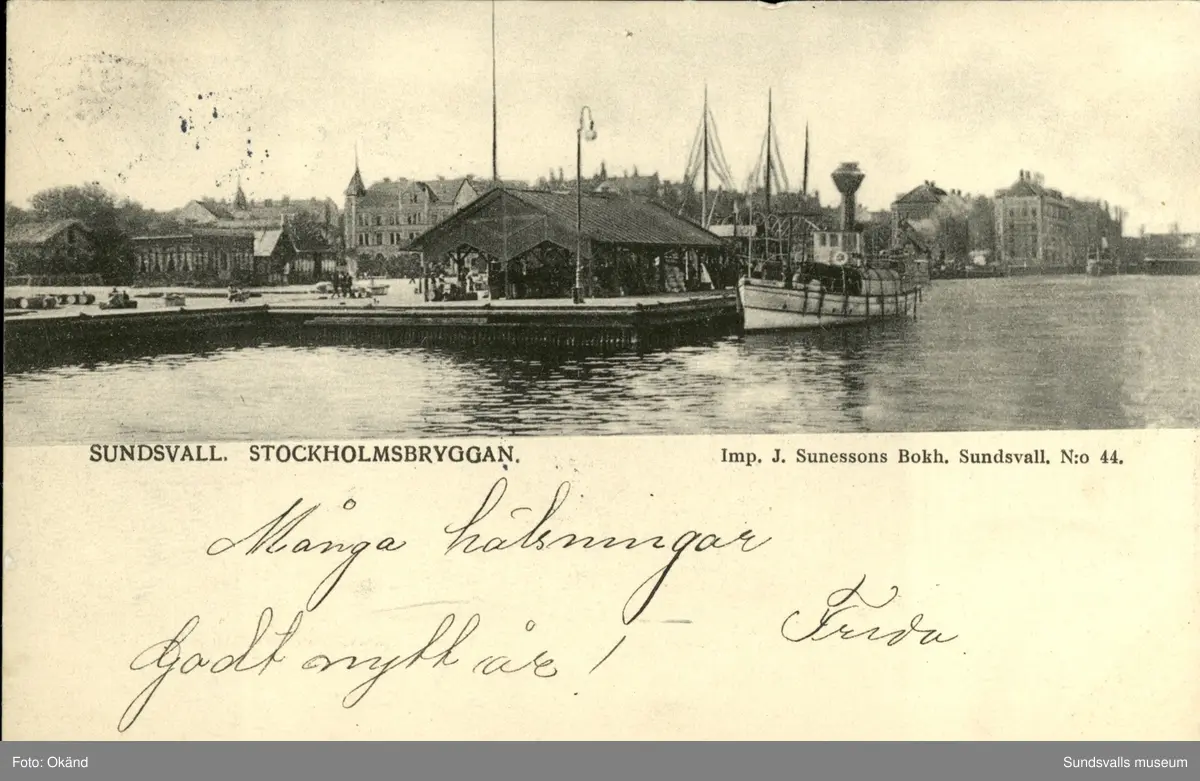 SUNDSVALL. STOCKHOLMSBRYGGAN.
Imp. J. Sunessons Bokh. Sundsvall. N:o 44.
Många hälsningar
Godt nytt år! – Frida
Foto: Okänd
Sundsvalls museum